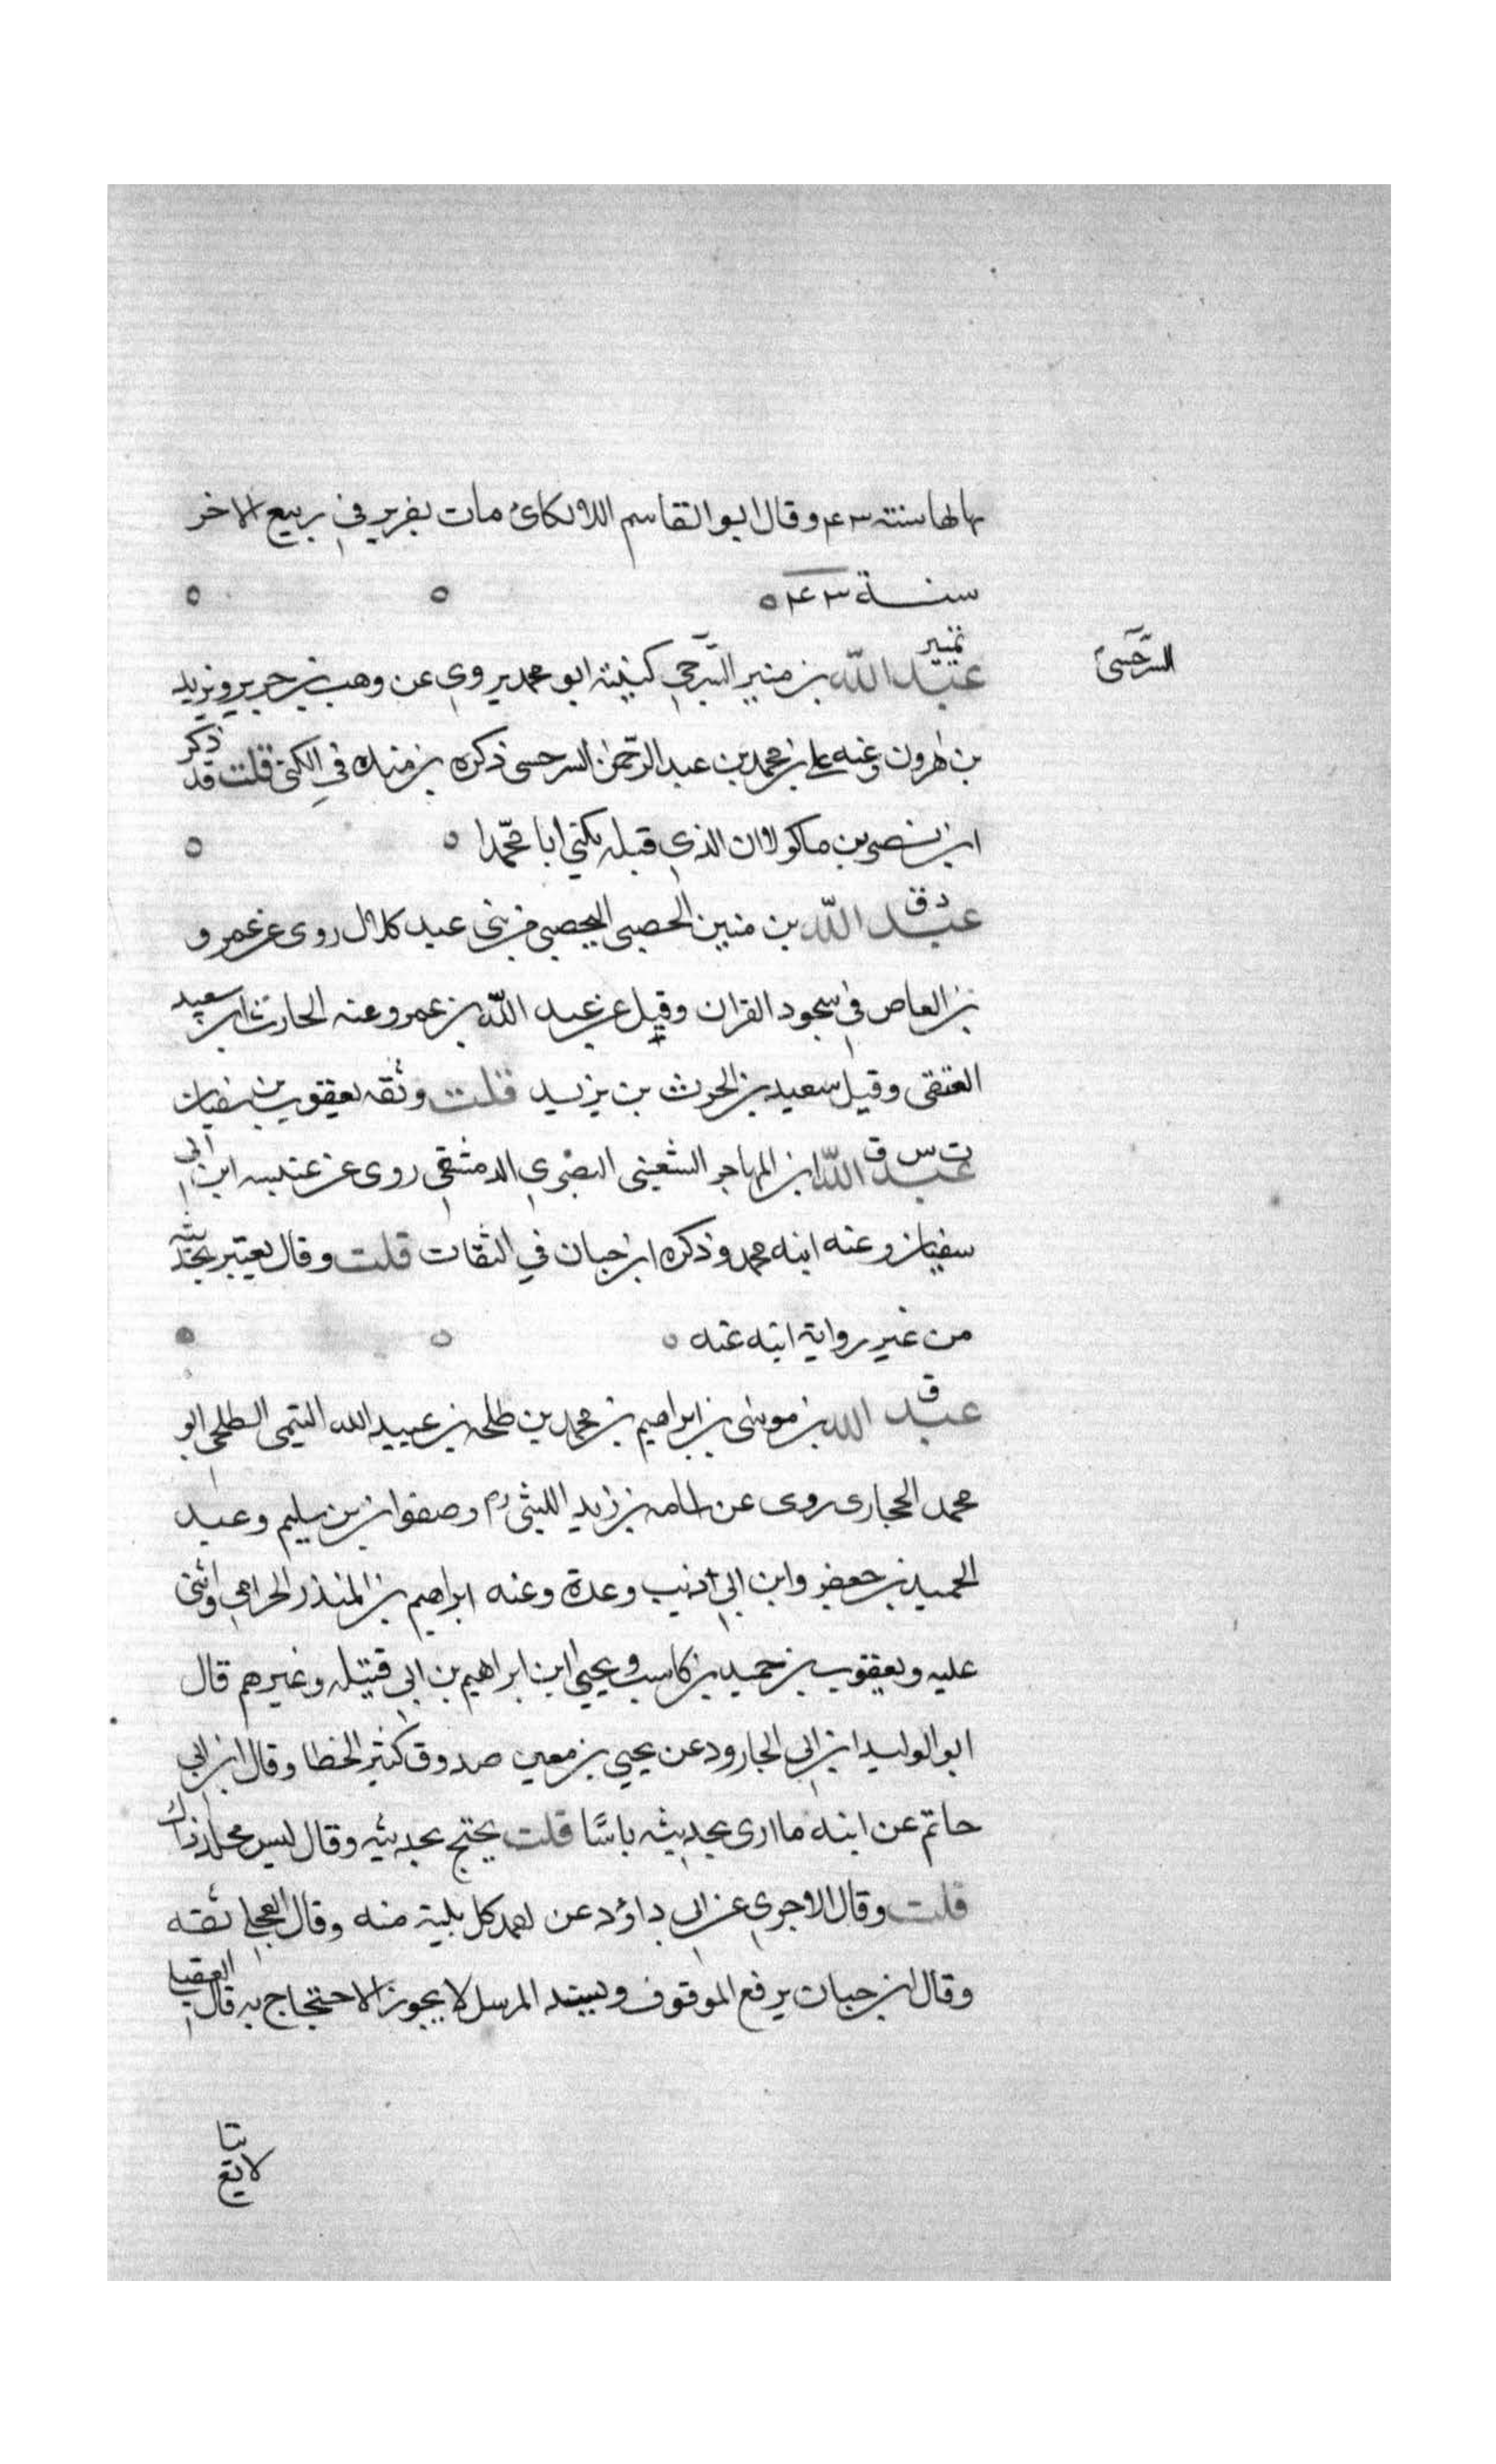 بها لها سنة ٢٤٣ وقال ابو القاسم اللالكائ مات بفربر في ربيع الاخر
سنة ٢٤٣
السرخسى
تمييز
عبد الله بن منير السرحي كنيته ابو محمد يروي عن وهب بن جرير ويزيد
بن هرون وعنه علي بن محمد بن عبد الرحمن السرحسى ذكره بن منده في الكنى قلت قد ذكر
ابن بن ماكولا ان الذي قبله يكنى ابا محمدا
د ق
عبد الله بن منين الحصبى اليحصبي من بني عبد كلال روى عن عمرو
بن العاص في سجود القران وقيل عن عبد الله بن عمرو عنه الحارث ابن سعيد
العتقى وقيل سعيد بن الحرث بن يزيد قلت وثقه يعقوب بن سفيان
ت س ق
عبد الله ابن المهاجر الشعيثى النصري الدمشقي روى عن عنبسه ابن ابي
سفيان وعنه ابنه محمد وذكره ابن حبان في الثقات قلت وقال يعتبر بحديثه
من غير رواية ابنه عنه
ق
عبد الله بن موسى بن ابراهيم بن محمد بن طلحه بن عبيد الله التيمى الطلحي ابو
محمد الحجازى روى عن اسامه بن زيد الليثى وصفوان بن سليم وعبد
الحميد بن جعفر وابن ابي ذئيب وعدة وعنه ابراهيم بن المنذر الحزامي واثنى
عليه ويعقوب بن حميد بن كاسب ويحيى ابن ابراهيم بن ابي قتيله وغيرهم قال
ابو الوليد ابن ابي الجارود عن يحيى بن معين صدوق كثير الخطا وقال ابن ابي
حاتم عن ابيه ما ارى بحديثه باسًا قلت يحتج بحديثه وقال ليس محله ذاك
قلت وقال الاجري عن ابي داؤد عن احمد كل بلية منه وقال العجلي ثقه
وقال ابن حبان يرفع الموقوف ويسند المرسل لا يجوز الاحتجاج به قال العقيلي
لا يتا
بع